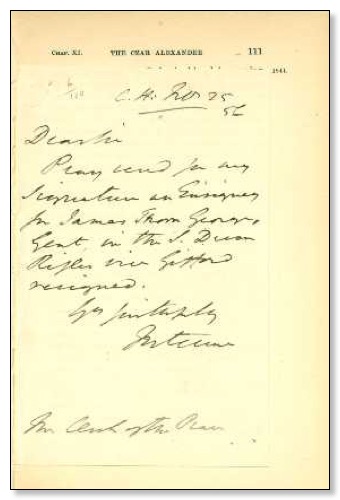 CHAP. XI. THE CZAR ALEXANDER 111
1861.
6
C. H. Feb 25
56
Dear Sir
Pray send for my
Signature an Ensigncy
for James Thorn George,
Gent in the S. Devon
Rifles vice Gifford
resigned.
Yrs faithfully
Fortescue
Mr Clerk of the Peace